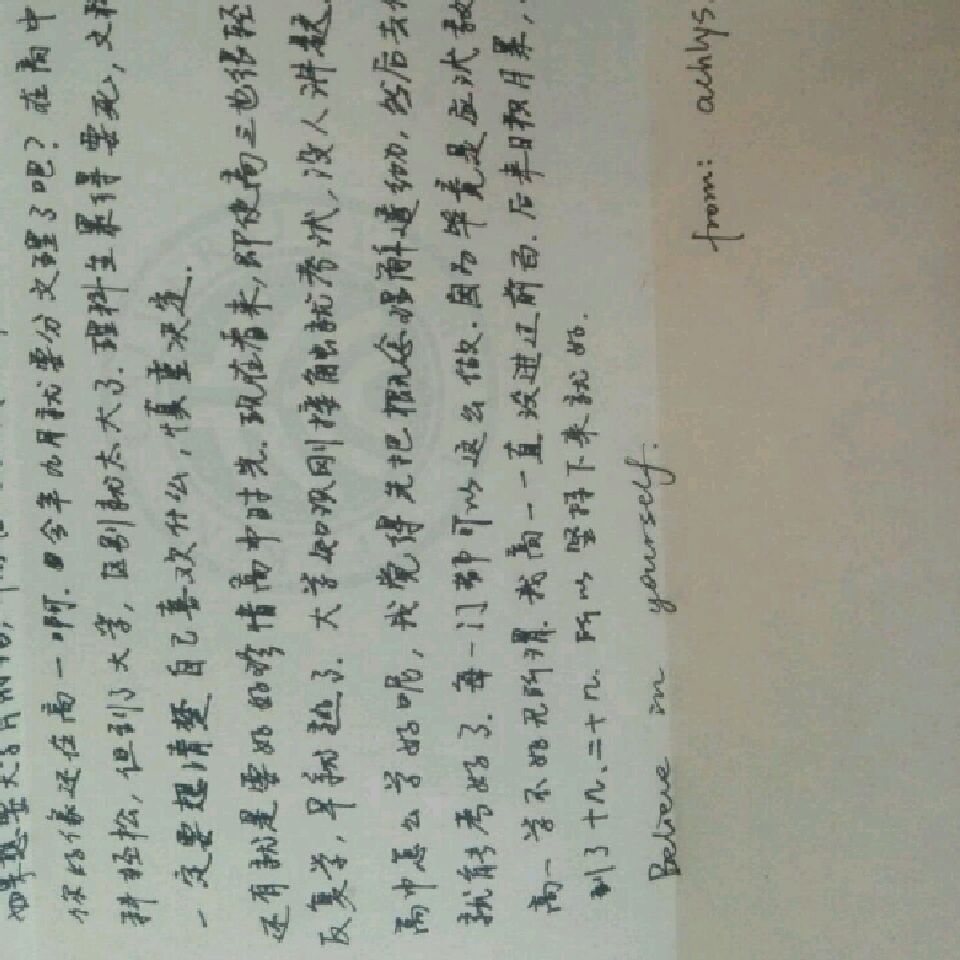 你好像还在高一啊.今年九月就要分文理了吧?在高中
理科生累得要死,文科
科轻松,但到了大学,区别就太大了.
一定要想清楚自己喜欢什么,慎重决定.
还有就是要好好珍惜高中时光.现在看来,即使高三也很轻
反复学,早就熟了.大学知识刚接触就考试,没人讲题
高中怎么学好呢,我觉得先把概念都弄透彻,然后去
就能考好了.每一门都可以这么做.因为毕竟是应试教
高一学不好无所谓.我高一一直没进过前百.后来日积月累,
到了十几、二十几.所以坚持下来就好.
Believe in yourself.
from: achlys.